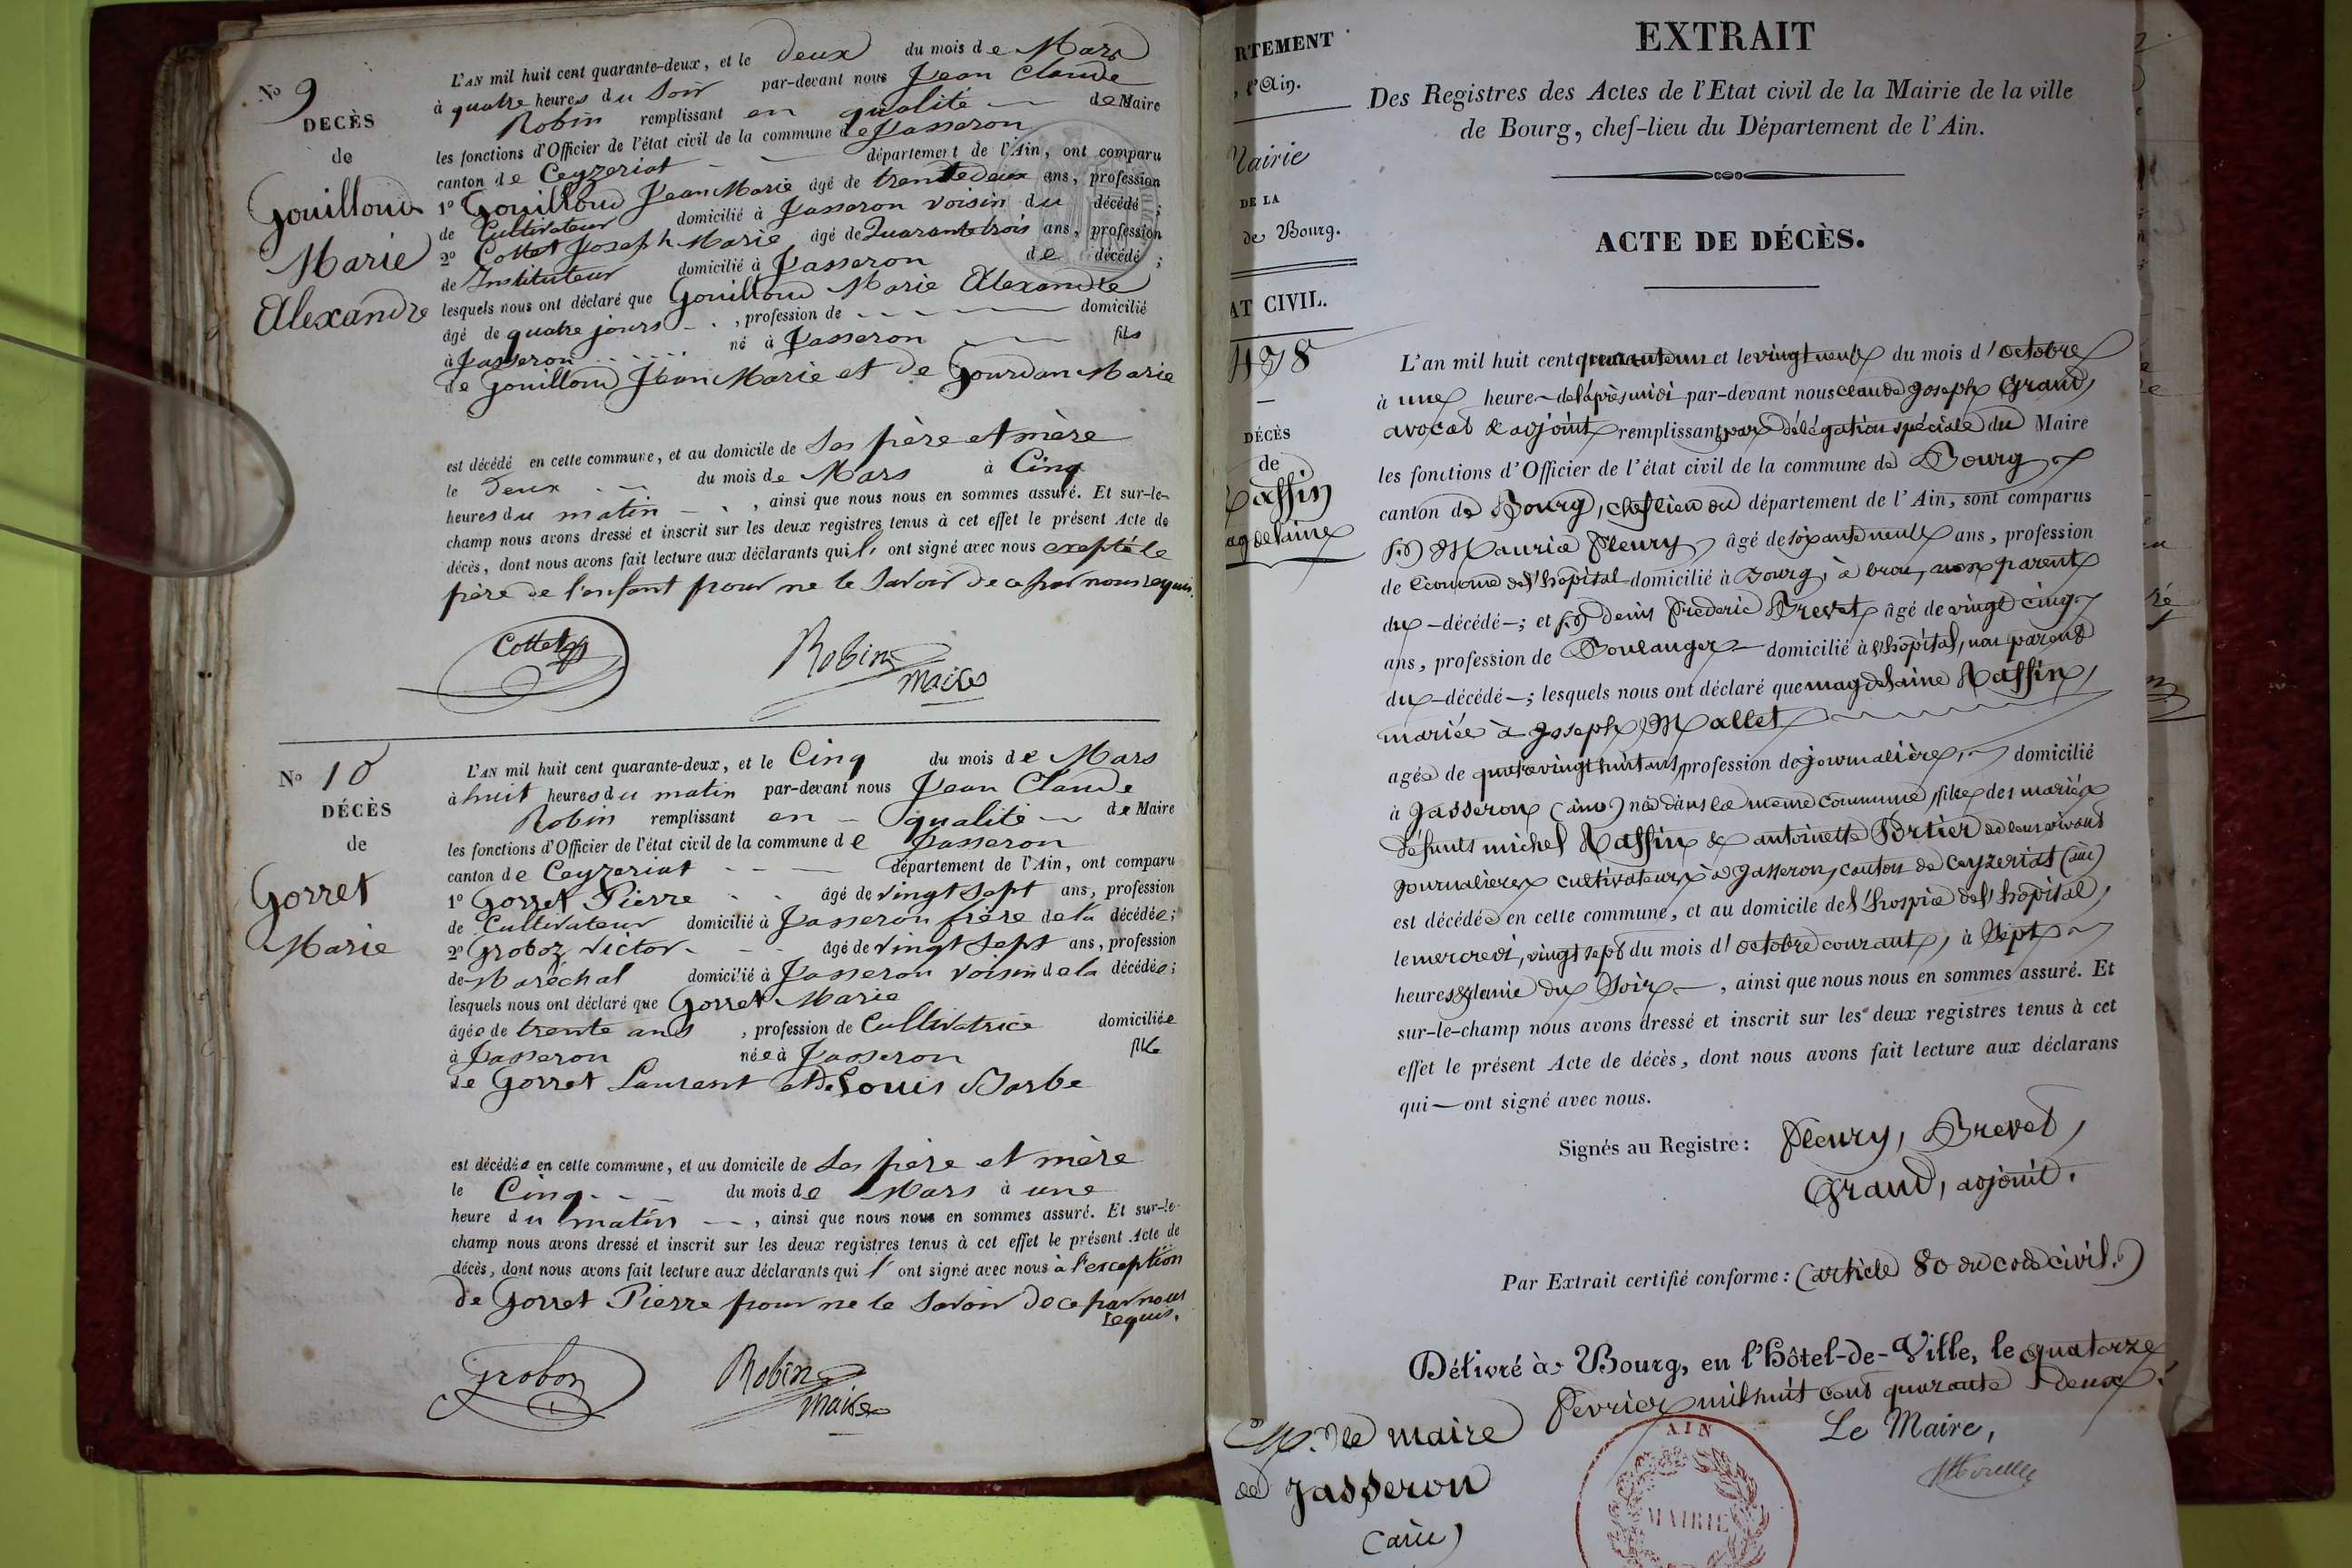 N° 9
DECÈS
de
Gouilloud
Marie
Alexandre
L'AN mil huit cent quarante-deux, et le deux du mois de Mars
à quatre heures du Soir par-devant nous Jean Claude
Robin remplissant en qualité de Maire
les fonctions d'Officier de l'état civil de la commune de Jasseron
canton de Ceyzeriat département de l'Ain, ont comparu
1° Gouilloud Jean Marie âgé de trente deux ans, profession
de Cultivateur domicilié à Jasseron voisin du décédé ;
2° Cottet Joseph Marie, âgé de Quarante trois ans, profession
de Instituteur domicilié à Jasseron de décédé ;
lesquels nous ont déclaré que Gouilloud Marie Alexandre
âgé de quatre jours, profession de domicilié
à Jasseron né à Jasseron fils
de Gouilloud Jean Marie et de Gourdan Marie
est décédé en cette commune, et au domicile de Ses père et mère
le deux du mois de Mars à Cinq
heures du matin, ainsi que nous nous en sommes assuré. Et sur-le-
champ nous avons dressé et inscrit sur les deux registres tenus à cet effet le présent Acte de
décès, dont nous avons fait lecture aux déclarants qui l' ont signé avec nous exepté le
père de l'enfant pour ne le Savoir de ce par nous requis.
Cottet
Robin
maire
N° 10
DÉCÈS
de
Gorret
Marie
L'AN mil huit cent quarante-deux, et le Cinq du mois de Mars
à huit heures du matin par-devant nous Jean Claude
Robin remplissant en qualité de Maire
les fonctions d'Officier de l'état civil de la commune de Jasseron
canton de Ceyzeriat département de l'Ain, ont comparu
1° Gorret Pierre âgé de vingt sept ans, profession
de Cultivateur domicilié à Jasseron frère de la décédée ;
2° Groboz Victor âgé de vingt sept ans, profession
de Maréchal domicilié à Jasseron voisin de la décédée ;
lesquels nous ont déclaré que Gorret Marie
âgée de trente ans, profession de Cultivatrice domiciliée
à Jasseron née à Jasseron fille
de Gorret Laurent et de Louis Barbe
est décédée en cette commune, et au domicile de Ses père et mère
le Cinq du mois de Mars à une
heure du matin, ainsi que nous nous en sommes assuré. Et sur-le-
champ nous avons dressé et inscrit sur les deux registres tenus à cet effet le présent Acte de
décès, dont nous avons fait lecture aux déclarants qui l' ont signé avec nous à l'exception
de Gorret Pierre pour ne le Savoir de ce par nous
requis.
Groboz
Robin
maire
RTEMENT
l'Ain.
Mairie
DE LA
de Bourg.
AT CIVIL.
DÉCÈS
de
Raffin
agdelaine
EXTRAIT
Des Registres des Actes de l'Etat civil de la Mairie de la ville
de Bourg, chef-lieu du Département de l'Ain.
ACTE DE DÉCÈS.
L'an mil huit cent quarante un et le vingt neuf du mois d'octobre
à une heure de l'après midi par-devant nous claude Joseph Grand,
avocat & adjoint remplissant par délégation spéciale du Maire
les fonctions d'Officier de l'état civil de la commune de Bourg
canton de Bourg, chef lieu du département de l'Ain, sont comparus
Maurice fleury, âgé de soixante neuf ans, profession
de économe de l'hôpital domicilié à Bourg, à brou, non parent
du décédé ; et denis frédéric Brevet âgé de vingt cinq
ans, profession de Boulanger domicilié à l'hôpital, non parent
du décédé ; lesquels nous ont déclaré que magdelaine Raffin,
mariée à Joseph Mallet
agée de quatre vingt huit ans, profession de journalière, domicilié
à Jasseron (ain) née dans la même commune, fille des mariés
défunts michel Raffin & antoinette Portier de leur vivant
journaliers cultivateurs à Jasseron, canton de Ceyzeriat (ain)
est décédée en cette commune, et au domicile de l'hospice de l'hôpital,
le mercredi, vingt sept du mois d'octobre courant, à Sept
heures & demie du Soir, ainsi que nous nous en sommes assuré. Et
sur-le-champ nous avons dressé et inscrit sur les deux registres tenus à cet
effet le présent Acte de décès, dont nous avons fait lecture aux déclarans
qui ont signé avec nous.
Signés au Registre : fleury, Brevet,
Grand, adjoint.
Par Extrait certifié conforme : (article 80 du code civil.)
Délivré à Bourg, en l'Hôtel-de-Ville, le quatorze
février mil huit cent quarante deux.
Le Maire,
M. le maire
de Jasseron
(ain)
AIN
MAIRIE